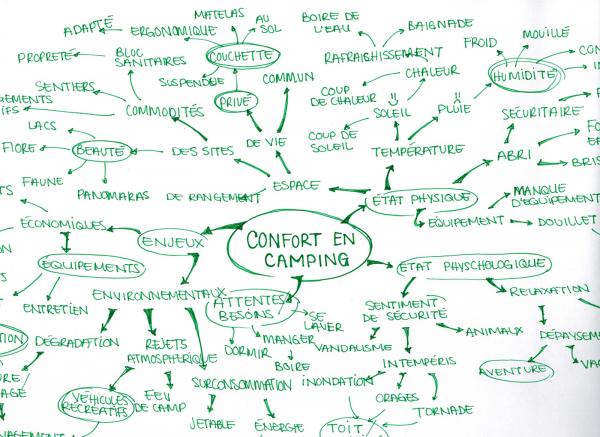 MATELAS
AU
SOL
BOIRE DE
L'EAU
BAIGNADE
ADAPTÉ
ERGONOMIQUE
FROID
MOUILLÉ
PROPRETÉ
BLOC
SANITAIRES
COUCHETTE
RAFRAICHISSEMENT
CHALEUR
HUMIDITÉ
SUSPENDUE
COMMUN
SENTIERS
PRIVÉ
COUP
DE CHALEUR
SOLEIL
PLUIE
SÉCURITAIRE
COMMODITÉS
LACS
COUP DE
SOLEIL
FIORE
BEAUTÉ
DES SITES
DE VIE
TEMPÉRATURE
ABRI
FAUNE
PANOMARAS
DE RANGEMENT
ESPACE
ÉTAT PHYSIQUE
MANQUE
D'ÉQUIPEMENT
ÉCONOMIQUES
ÉQUIPEMENT
DOUILLET
ENJEUX
CONFORT EN
CAMPING
ÉQUIPEMENTS
ÉTAT PHYSCHOLOGIQUE
ENVIRONNEMENTAUX
ATTENTES
BESOINS
SE
LAVER
SENTIMENT
DE SÉCURITÉ
RELAXATION
ENTRETIEN
DÉGRADATION
REJETS
ATMOSPHÉRIQUE
DORMIR
MANGER
BOIRE
VANDALISME
ANIMAUX
INTEMPÉRIS
AVENTURE
VÉHICULES
RÉCRÉATIFS
FEU
DE CAMP
SURCONSOMMATION
INONDATION
ORAGES
TORNADE
JETABLE
ÉNERGIE
TOIT